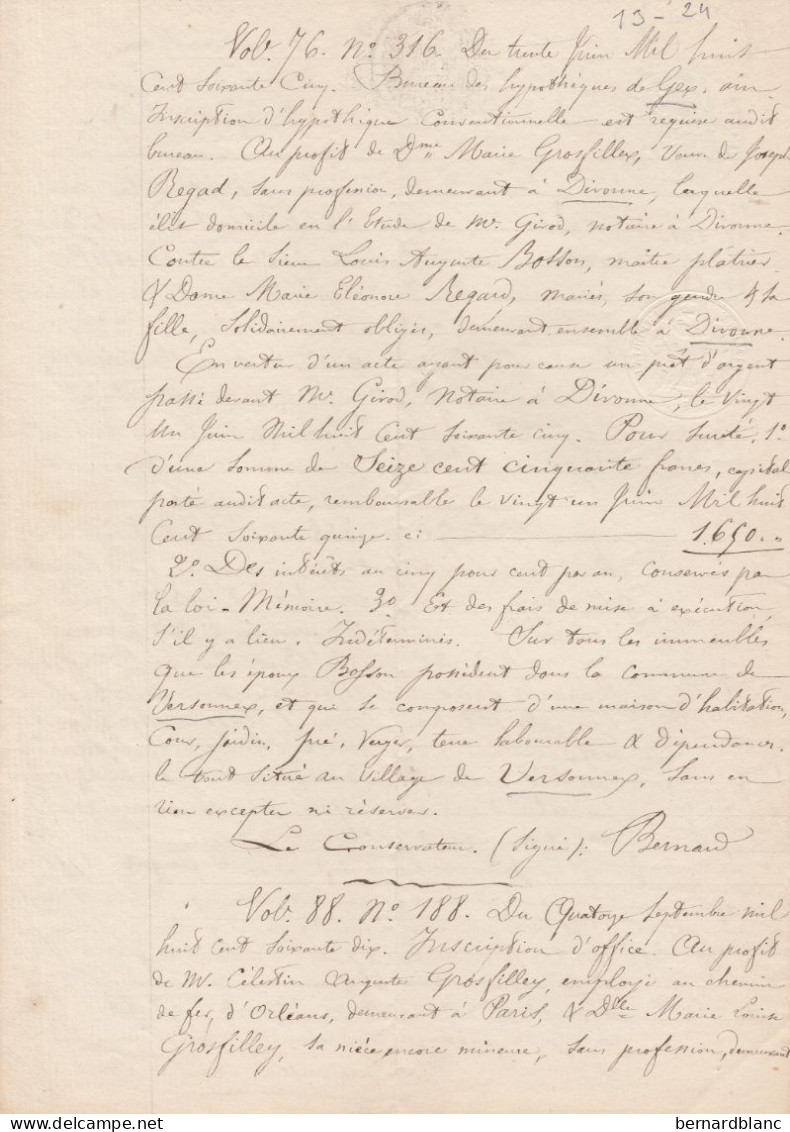 13 - 24
Vol. 76. N° 316. Du trente Juin Mil huit
Cent soixante Cinq. Bureau des hypothèques de Gex. ain
Inscription d'hypothèque Conventionnelle - est requise audit
bureau. Au profit de Dme Marie Grosfilley, Veuve de Joseph
Regad, sans profession, demeurant à Divonne, laquelle
élit domicile en l'Etude de Mr. Girod, notaire à Divonne.
Contre le Sieur Louis Auguste Bosson, maître plâtrier
& Dame Marie Eléonore Regard, mariés, son gendre & sa
fille, solidairement obligés, demeurant ensemble à Divonne.
En vertu d'un acte ayant pour cause un prêt d'argent
passé devant Mr. Girod, Notaire à Divonne, le vingt
un Juin Mil huit Cent soixante cinq. Pour sureté, 1°
d'une somme de Seize cent cinquante francs, capital
porté audit acte, remboursable le vingt un Juin Mil huit
Cent soixante quinze. ci: 1.650. "
2°. Des intérêts au cinq pour cent par an, conservés par
la loi - Mémoire. 3° Et des frais de mise à exécution
s'il y a lieu. Indéterminés. Sur tous les immeubles
que les époux Bosson possèdent dans la commune de
Versonnex, et qui se composent d'une maison d'habitation,
Cour, jardin, pré, verger, terre labourable & dépendances.
le tout situé au village de Versonnex, sans en
rien excepter ni réserver.
Le Conservateur. (signé): Bernard
Vol. 88. N° 188. Du Quatorze septembre mil
huit cent soixante dix. Inscription d'office. Au profit
de Mr. Célestin Auguste Grosfilley, employé au chemin
de fer, d'Orléans, demeurant à Paris, & Delle Marie Louise
Grosfilley, sa nièce encore mineure, sans profession, demeurant
bernardblanc